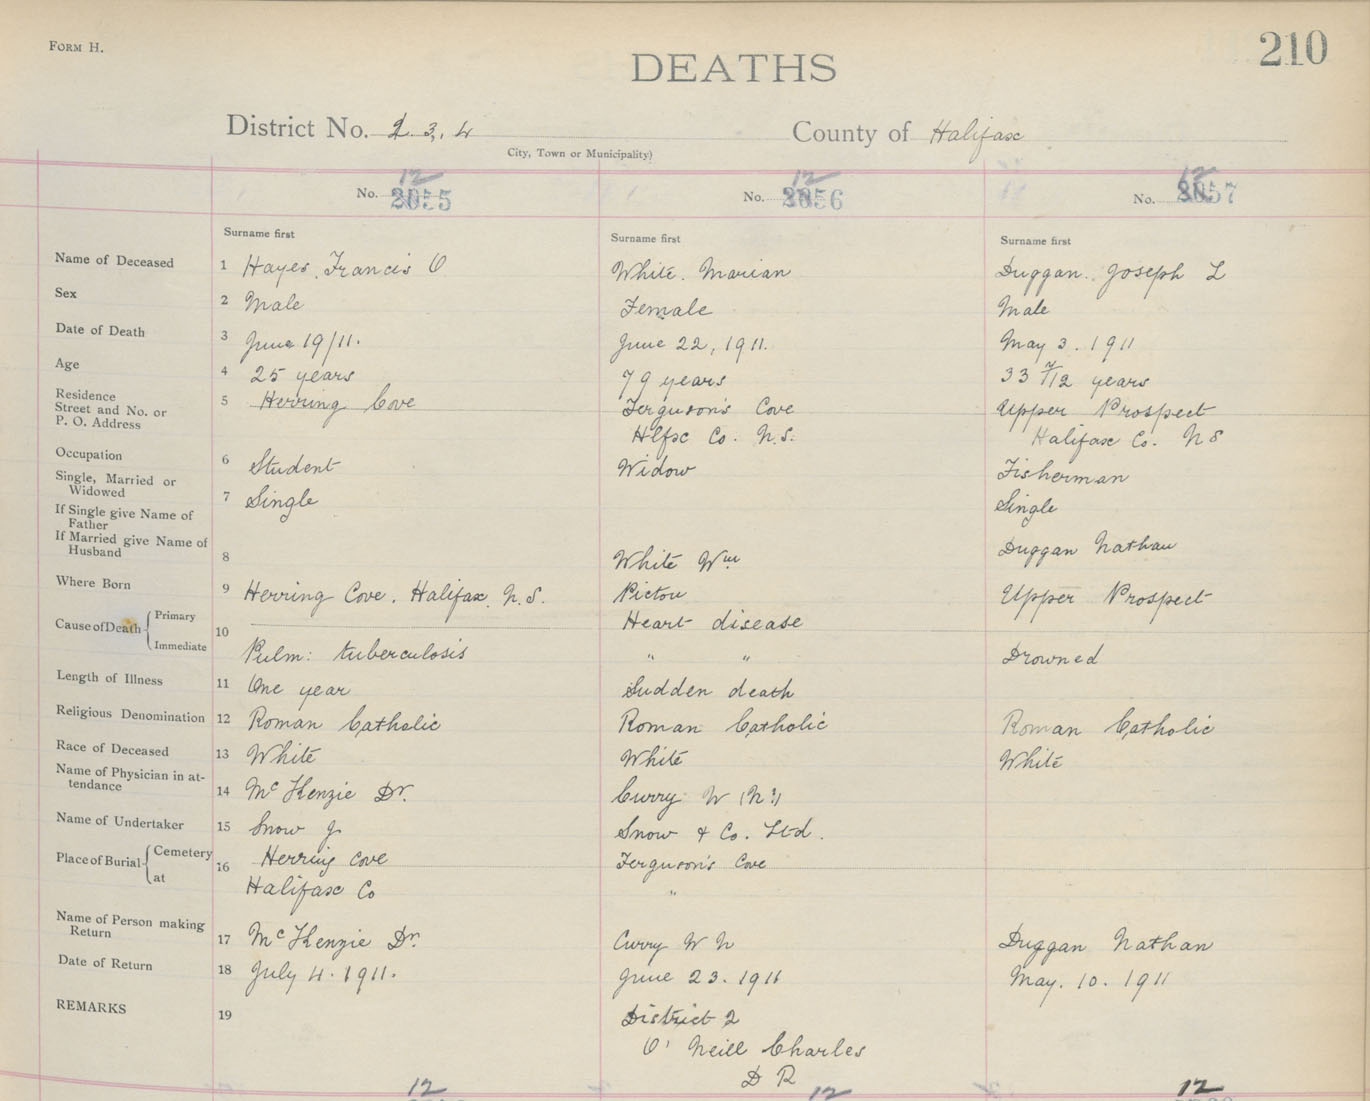 FORM H.
210
DEATHS
District No. 2. 3, 4
County of Halifax
City, Town or Municipality)
12
12
12
No. 2055
No. 2056
No. 2057
Surname first
Surname first
Surname first
Name of Deceased 1 Hayes, Francis O
White. Marian
Duggan. Joseph L
Sex 2 Male
Female
Male
Date of Death 3 June 19/11.
June 22, 1911.
May 3. 1911
Age 4 25 years
79 years
33 7/12 years
Residence
Street and No. or
P. O. Address
5 Herring Cove
Ferguson's Cove
Hlfx Co. N.S.
Upper Prospect
Halifax Co. N S
Occupation 6 Student
Widow
Fisherman
Single, Married or
Widowed
7 Single
Single
If Single give Name of
Father
If Married give Name of
Husband
8
White Wm
Duggan Nathan
Where Born 9 Herring Cove. Halifax. N.S.
Pictou
Upper Prospect
Cause of Death Primary
Immediate
10
Pulm: tuberculosis
Heart disease
" "
Drowned
Length of Illness 11 One year
Sudden death
Religious Denomination 12 Roman Catholic
Roman Catholic
Roman Catholic
Race of Deceased 13 White
White
White
Name of Physician in at-
tendance
14 McKenzie Dr.
Curry W
Name of Undertaker 15 Snow J
Snow & Co. Ltd.
Place of Burial Cemetery
at
16 Herring Cove
Halifax Co
Ferguson's Cove
"
Name of Person making
Return
17 McKenzie Dr.
Curry W N
Duggan Nathan
Date of Return 18 July 4. 1911.
June 23. 1911
May. 10. 1911
REMARKS 19
District 2
O' Neill Charles
D R
12
12
12